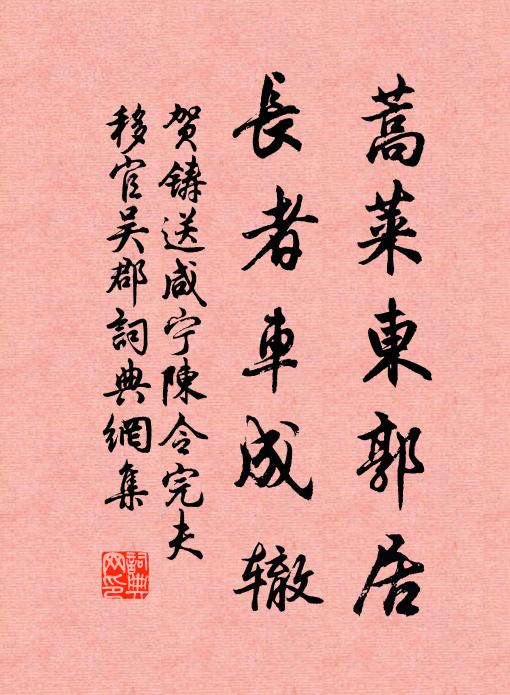 蒿莱東郭居
長者車成辙
贺铸送咸宁陳令完夫
移官吴郡詞典網集
詞典网印